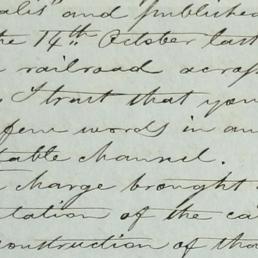 alis" and published
the 14th October last
railroad across
I trust that you
few words in an
table channel.
charge brought
lation of the ca
construction of tha